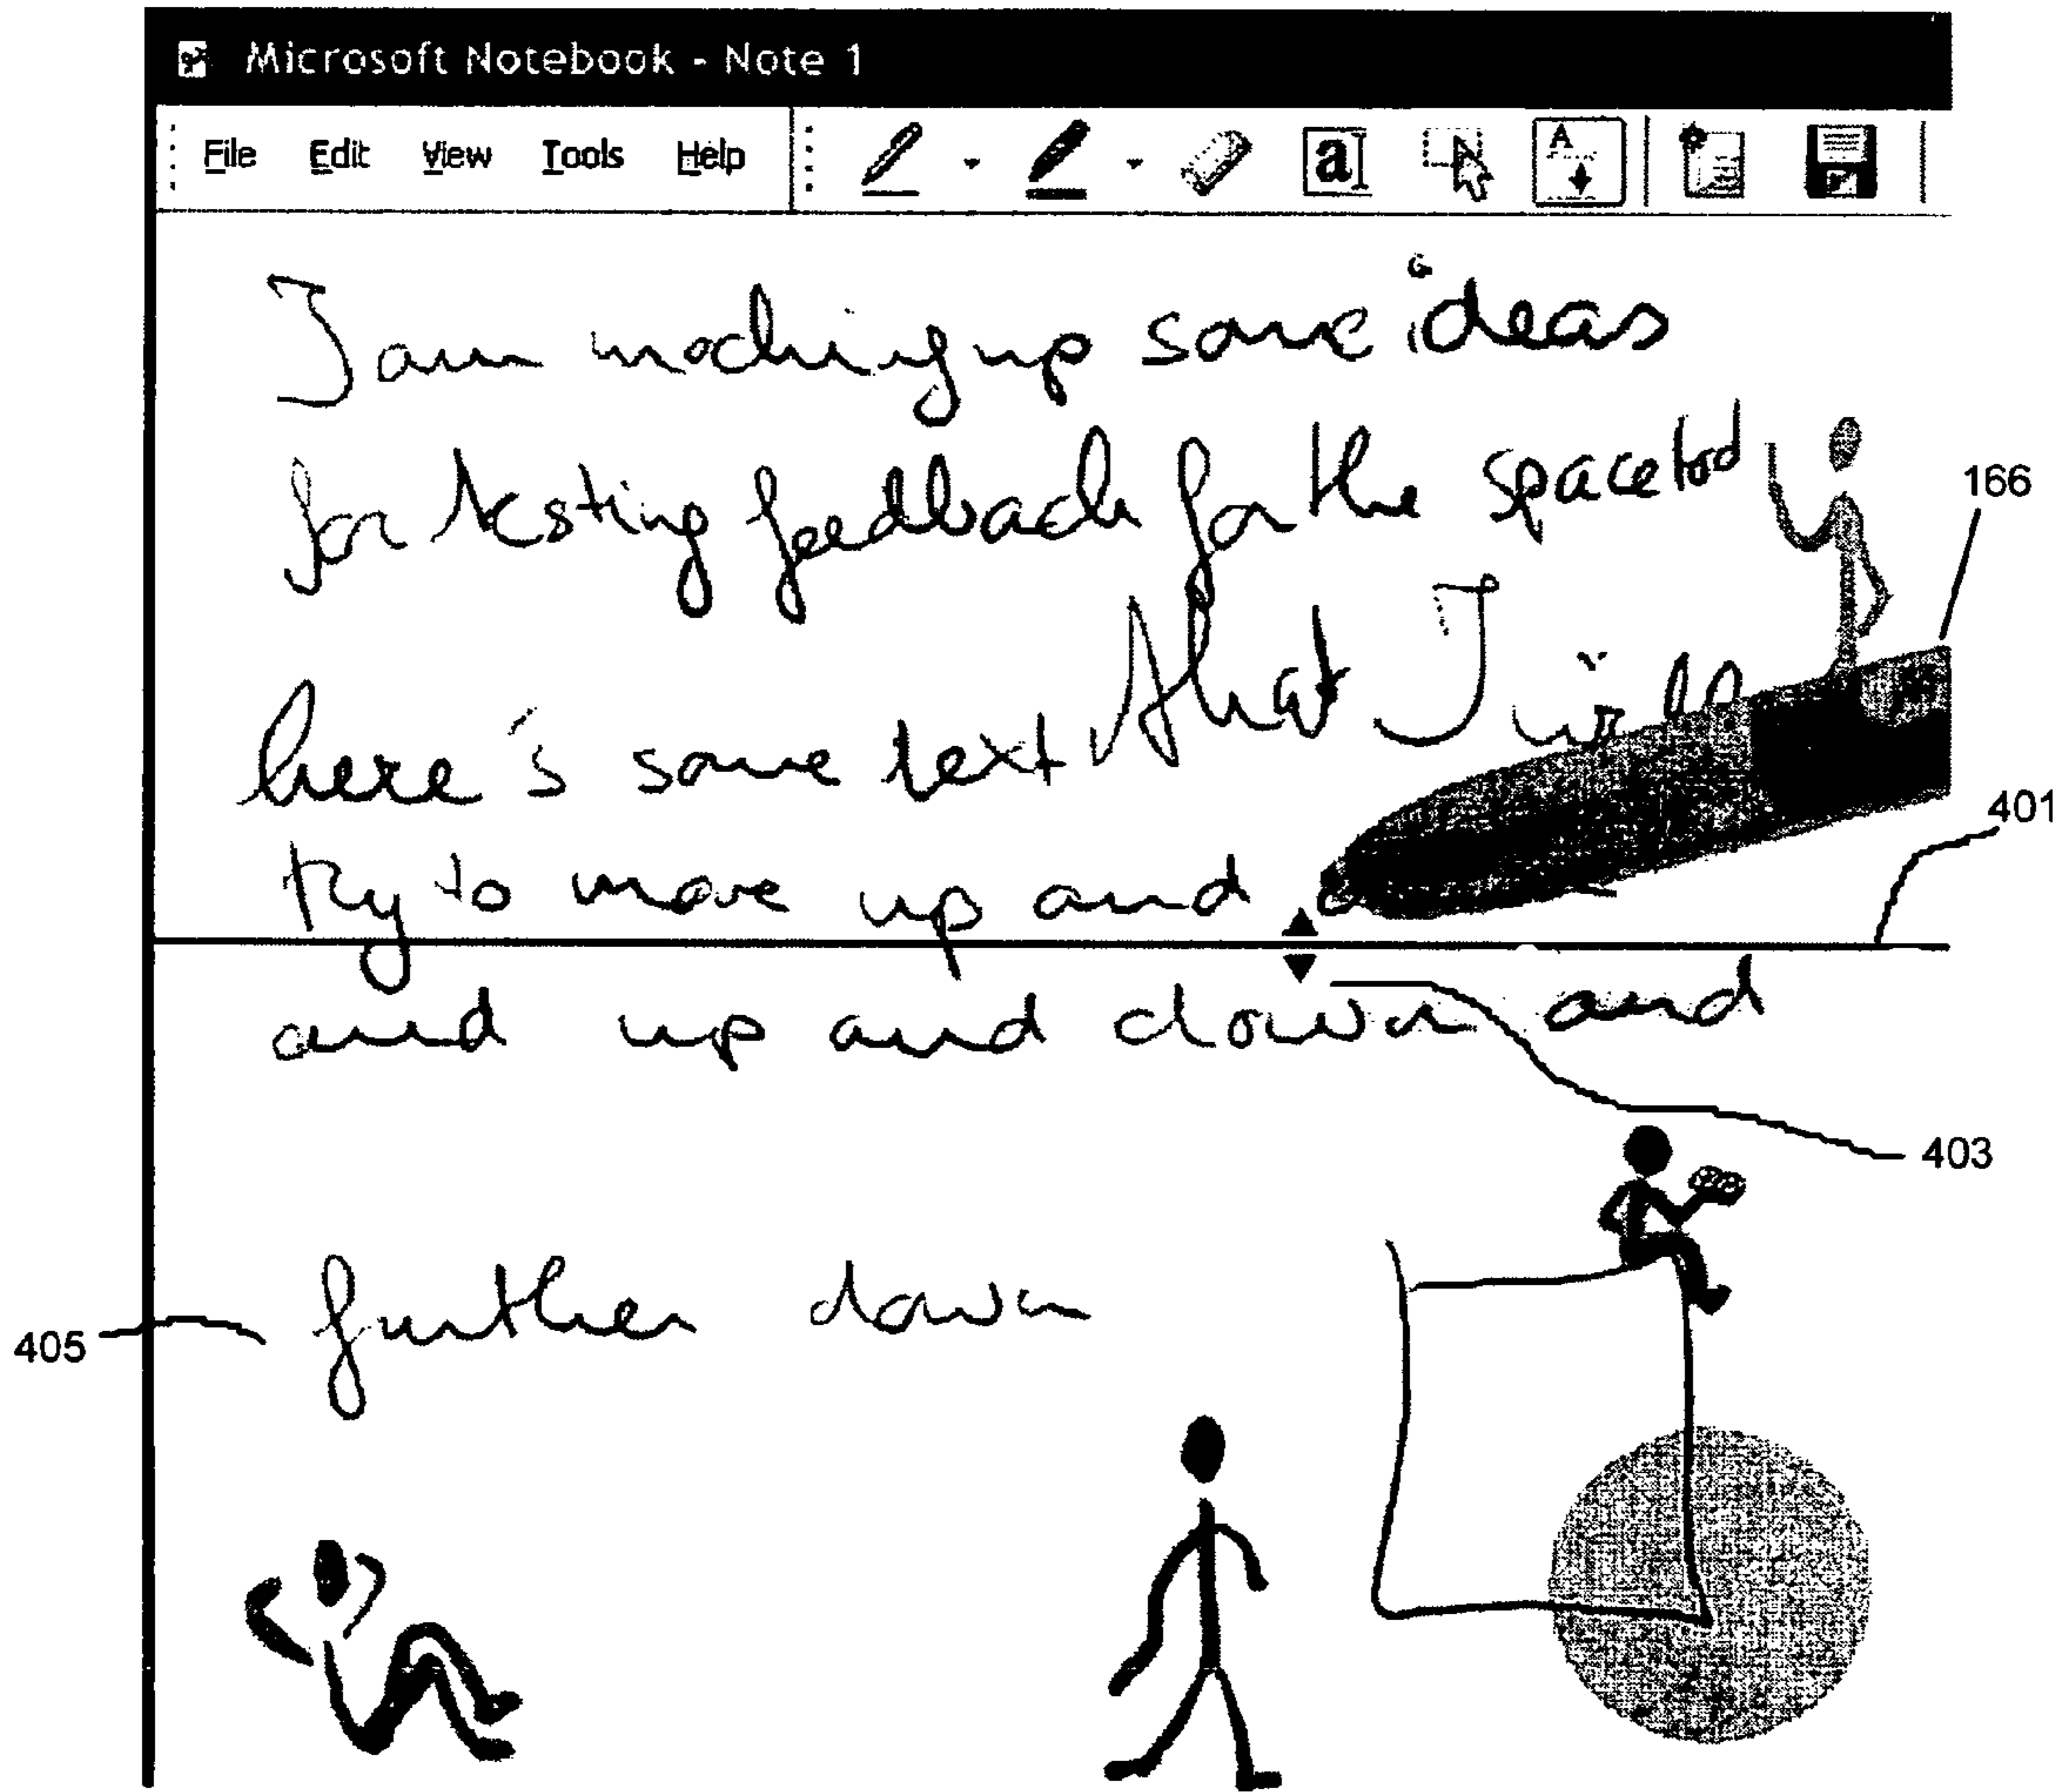 Microsoft Notebook - Note 1
File Edit View Tools Help a A
I am mocking up some ideas
for testing feedback for the spacetool
166
here's some text that I will
401
try to move up and
and up and down and
403
further down
405